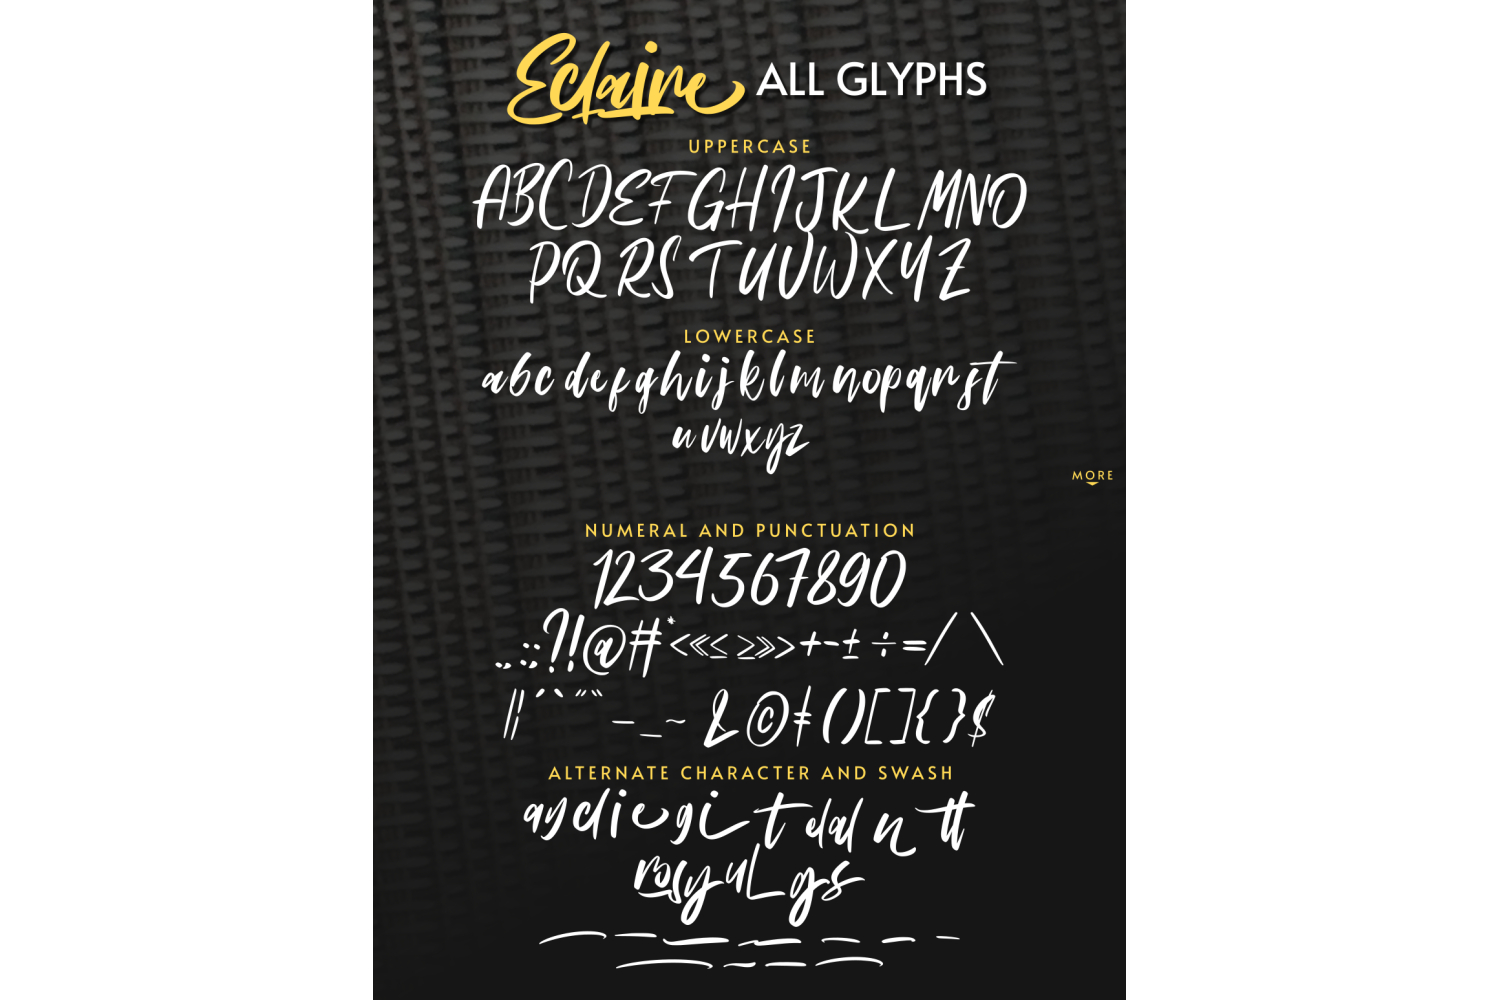 Eclaire ALL GLYPHS
UPPERCASE
ABCDEFGHIJKLMNO
PQRSTUVWXYZ
LOWERCASE
abcdefghijklmnopqrst
uvwxyz
MORE
NUMERAL AND PUNCTUATION
1234567890
.,:;?!@#*<«≤≥»>+-±÷=/\
|¦´`˝“–_~&©ǂ()[]{}$
ALTERNATE CHARACTER AND SWASH